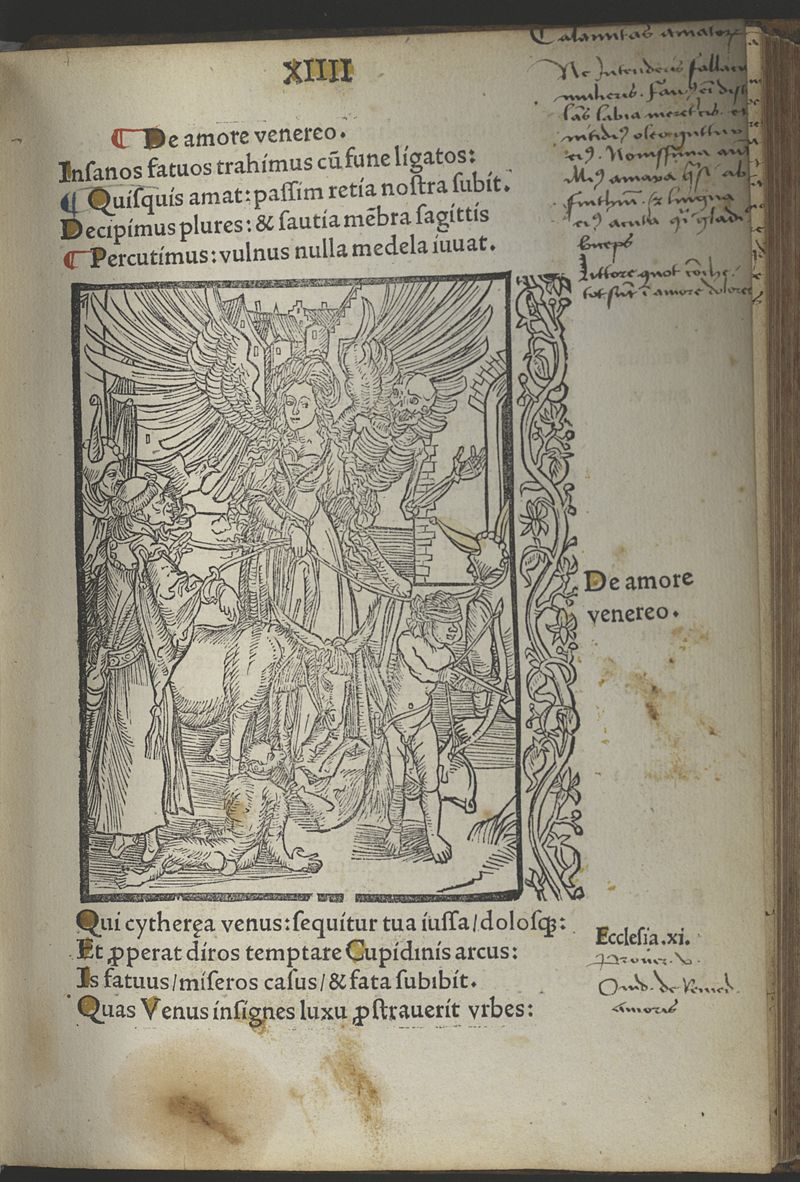 XIIII
De amore venereo.
Inſanos fatuos trahimus cū fune ligatos:
Quiſquis amat: paſſim retia noſtra ſubit.
Decipimus plures: & ſautia mēbra ſagittis
Percutimus: vulnus nulla medela iuuat.
Calamitas amator
Ne Intenderis fallac
mulieris. Fau
labia meretricis. et
nitidiꝰ oleo guttur
eiꝰ. Nouiſſima aut
amara qſi ab
ſinthiū. & lingua
eiꝰ acuta qſi gladi
biceps
littore quot cōche
tot ſūt ī amore dolores
De amore
venereo.
Qui cytheręa venus: ſequitur tua iuſſa/doloſꝗ:
Et ꝓperat diros temptare Cupidinis arcus:
Is fatuus/miſeros caſus/& fata ſubibit.
Quas Venus inſignes luxu ꝓſtrauerit vrbes:
Eccleſia.xi.
Prouer. v.
Ouid. de Remed.
Amoris